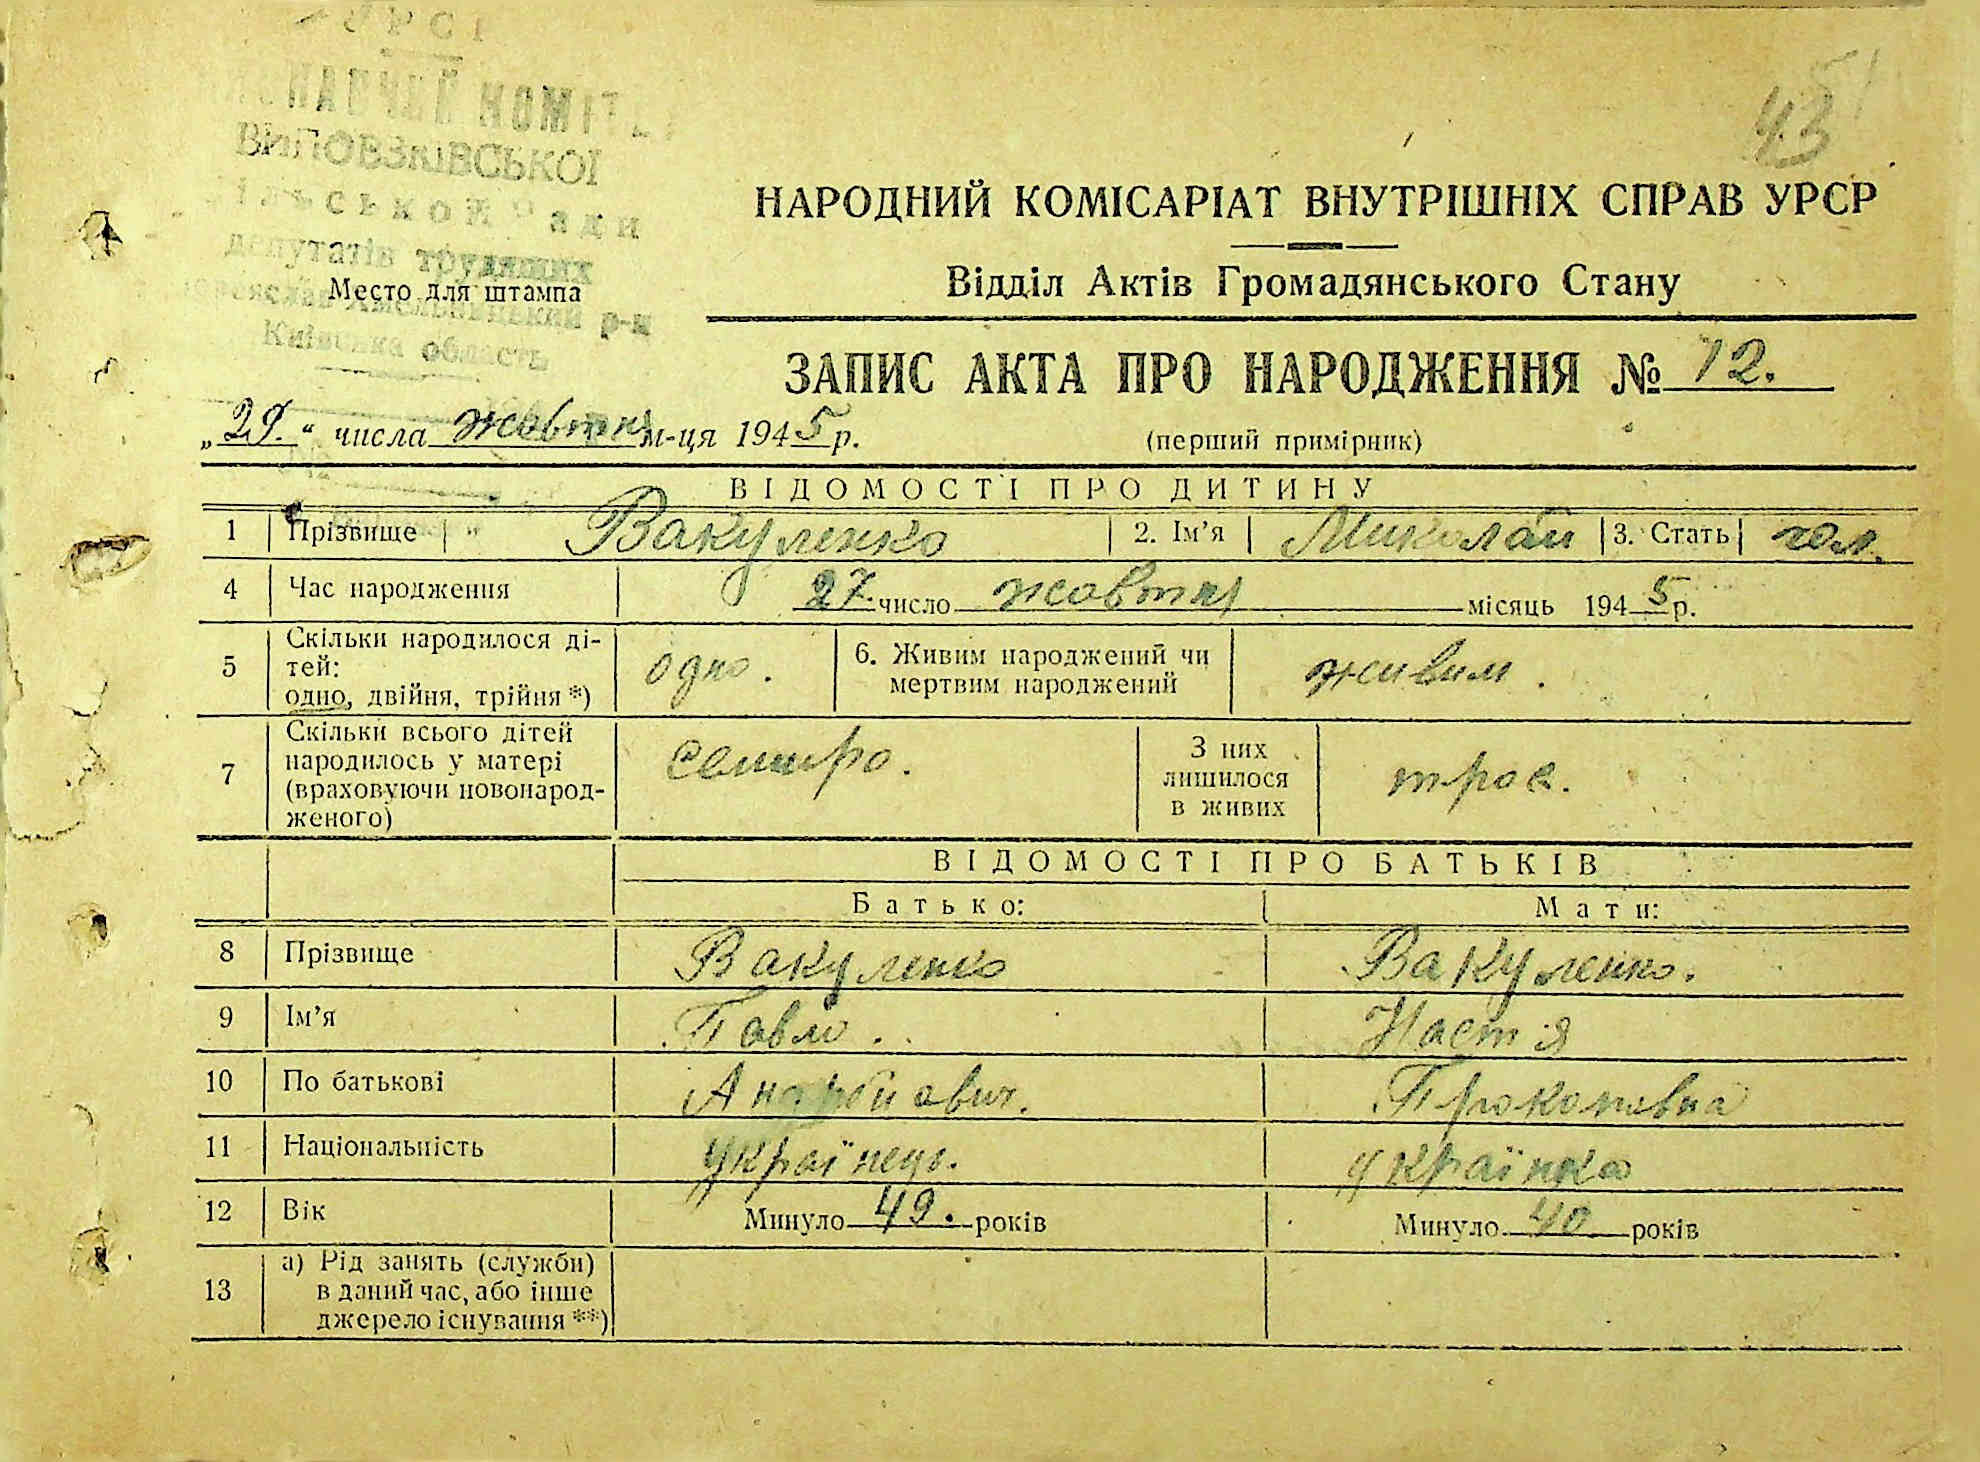 УРСР
ВИКОНАВЧИЙ КОМІТЕТ
ВИПОВЗКІВСЬКОЇ
сільської Ради
депутатів трудящих
Переяслав-Хмельницький р-н
Київська область
Место для штампа
43
51
НАРОДНИЙ КОМІСАРІАТ ВНУТРІШНІХ СПРАВ УРСР
Відділ Актів Громадянського Стану
ЗАПИС АКТА ПРО НАРОДЖЕННЯ № 12.
„29.“ числа жовтня м-ця 1945 р. (перший примірник)
№
ВІДОМОСТІ ПРО ДИТИНУ
1 Прізвище Вакуленко 2. Ім’я Миколай 3. Стать чол.
4 Час народження 27. число жовтня місяць 1945 р.
5 Скільки народилося ді-
тей:
одно, двійня, трійня *) одно. 6. Живим народжений чи
мертвим народжений живим.
7 Скільки всього дітей
народилось у матері
(враховуючи новонарод-
женого) семиро. З них
лишилося
в живих троє.
ВІДОМОСТІ ПРО БАТЬКІВ
Батько: Мати:
8 Прізвище Вакуленко Вакуленко.
9 Ім’я Павло. Настя
10 По батькові Андрійович. Прокоповна
11 Національність українець. українка
12 Вік Минуло 49. років Минуло 40 років
13 а) Рід занять (служби)
в даний час, або інше
джерело існування **)